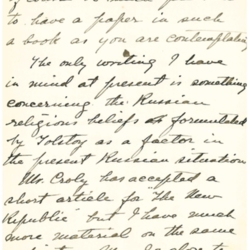 to have a paper in such
a book as you are contemplating
The only writing I have
in mind at present is something
concerning the Russian
religious beliefs as formulated
by Tolstoy as a factor in
the present Russian situation
Mr. Croly has accepted a
short article for "The New
Republic" but I have much
more material on the same